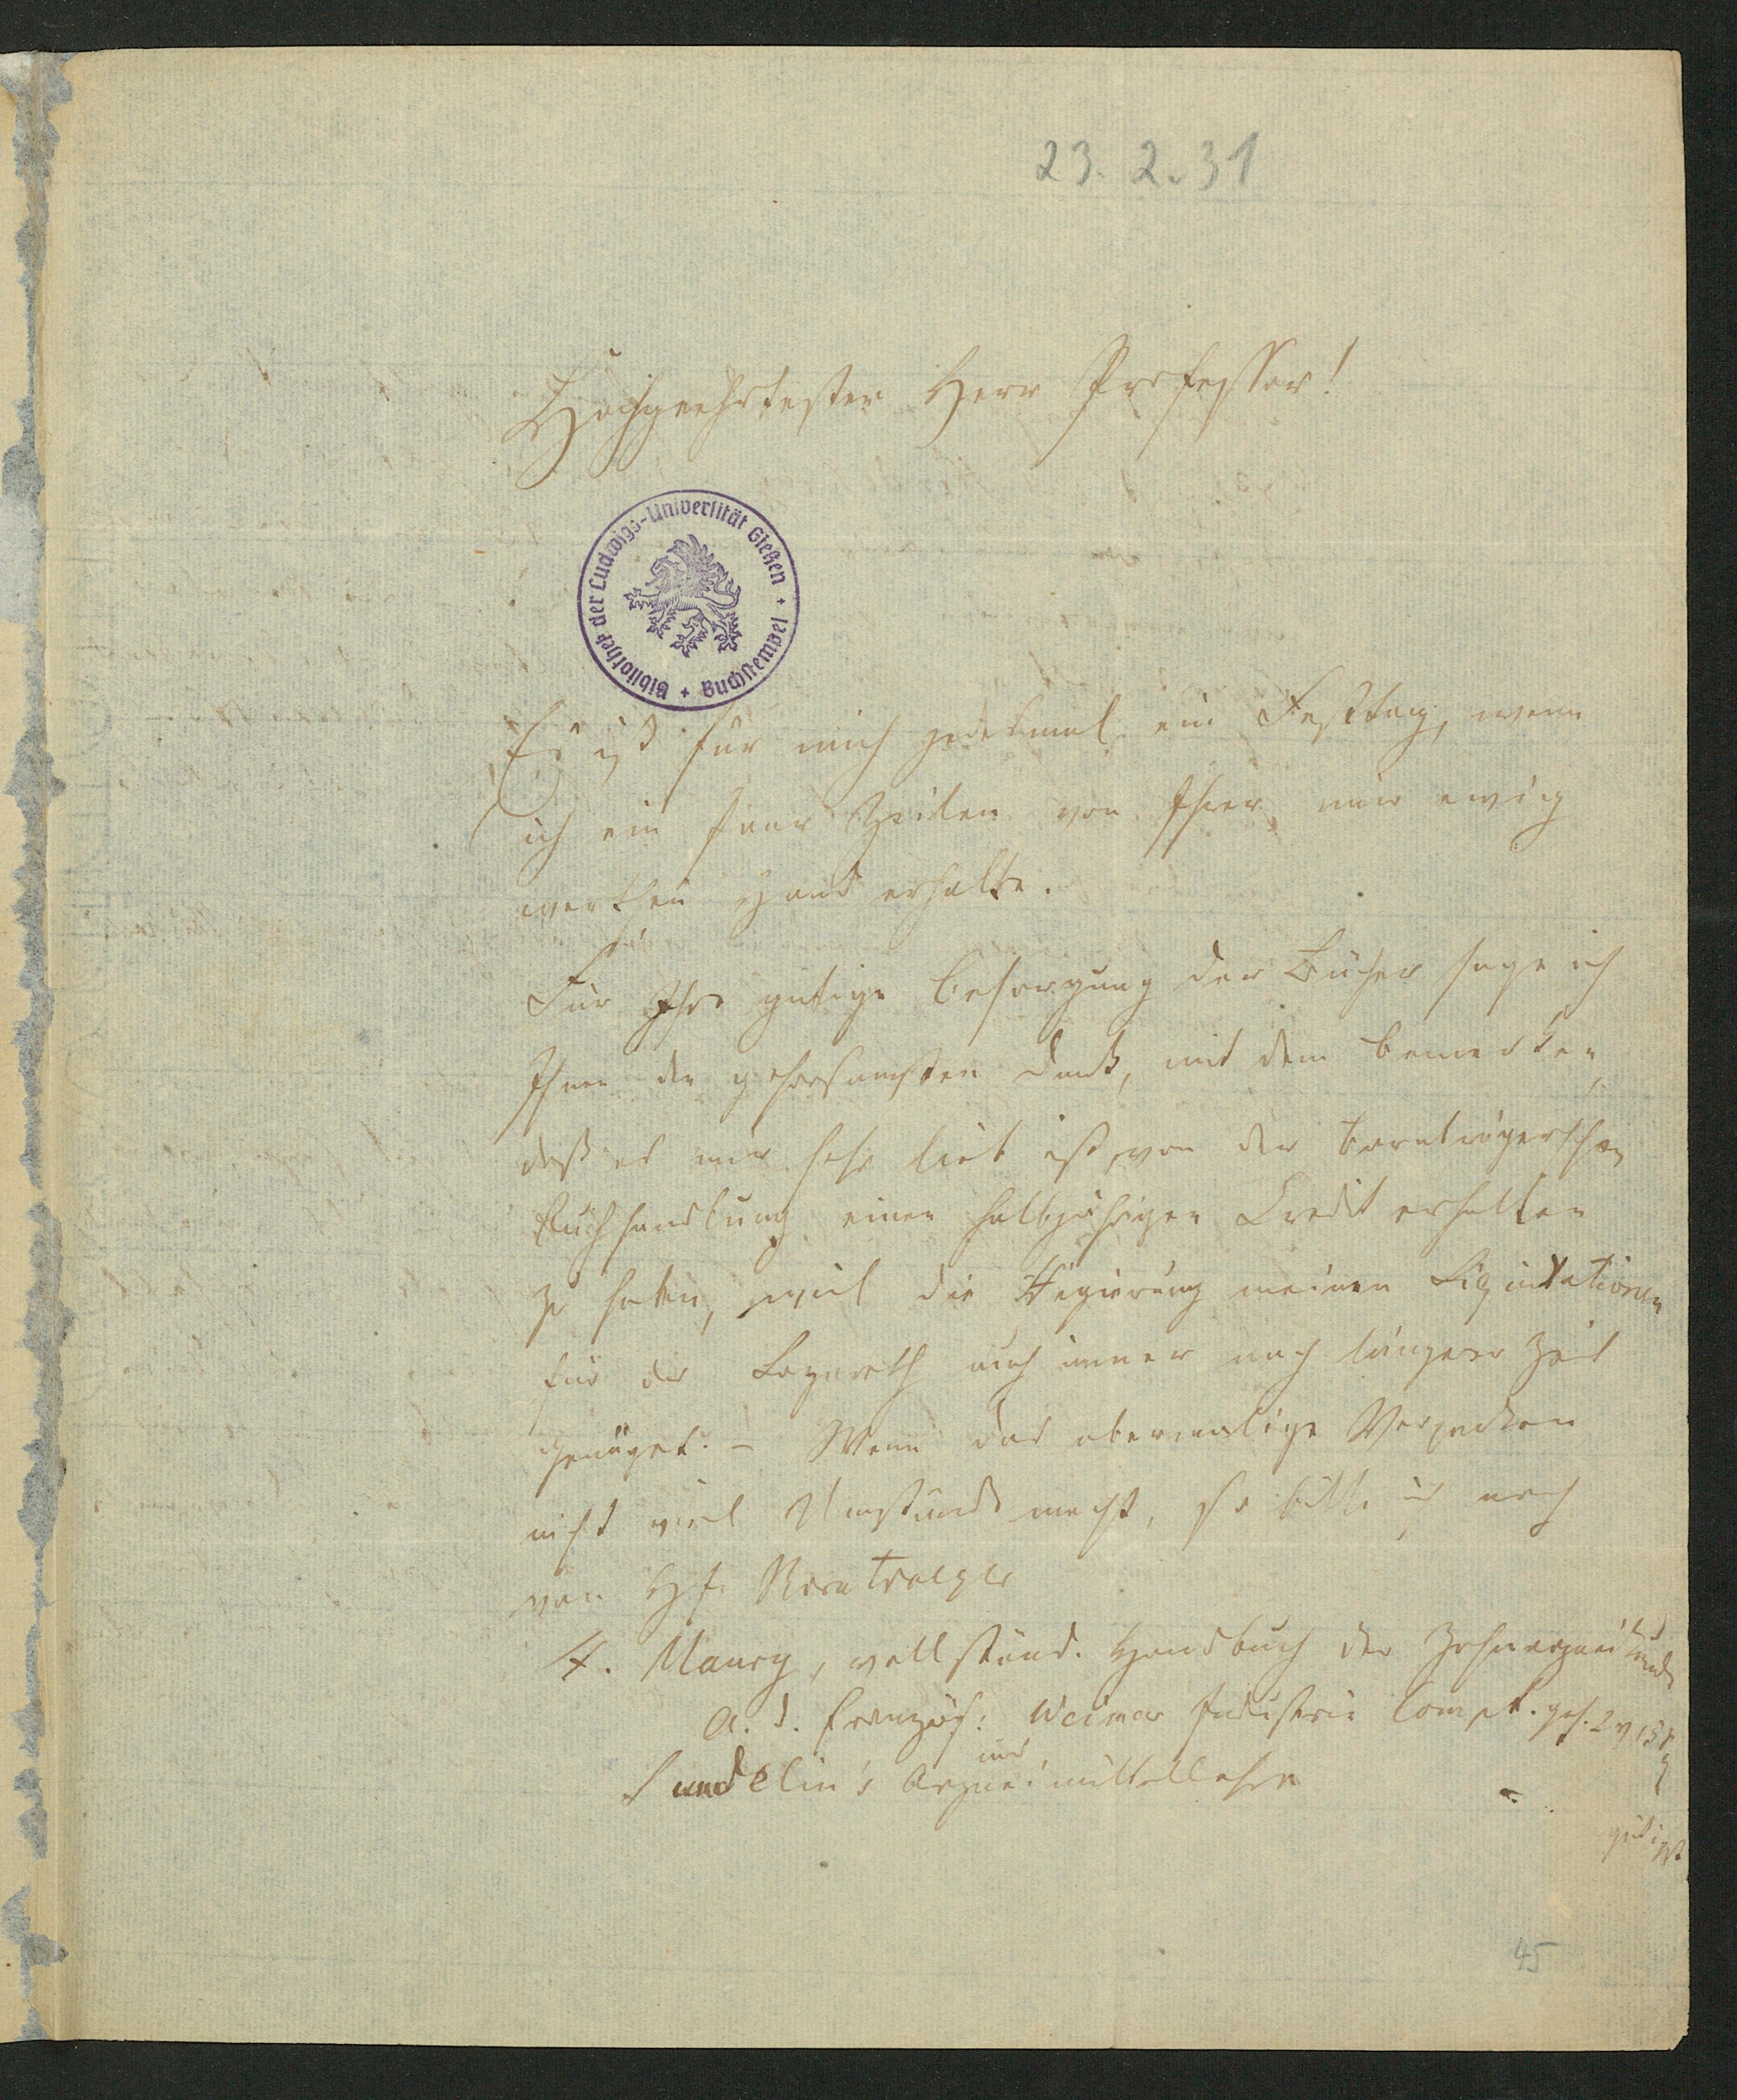 23. 2. 31
Hochgeehrtester Herr Professor!
Bibliothek der Ludwigs-Universität Gießen + Buchstempel +
Es ist für mich jedesmal ein Festtag, wenn
ich ein paar Zeilen von Ihrer mir ewig
werthen Hand erhalte.
Für Ihre gütige Besorgung der Bücher sage ich
Ihnen den gehorsamsten Dank, mit dem Bemerken,
daß es mir sehr lieb ist, von der Bornträgerschen
Buchhandlung einen halbjährigen Credit erhalten
zu haben, weil die Regierung meinen Liquidationen
für das Lazareth auch immer nach längerer Zeit
genüget. – Wenn das abermalige Verpacken
nicht viel Umstände macht, so bitte ich noch
von H Borntraeger
F. Maury, vollständ. Handbuch der Zahnarzneikunde
a. d. Französ: Weimar Industrie Compt. geh. 2
und
Sundelin's Arzneimittellehre
gütigst
45